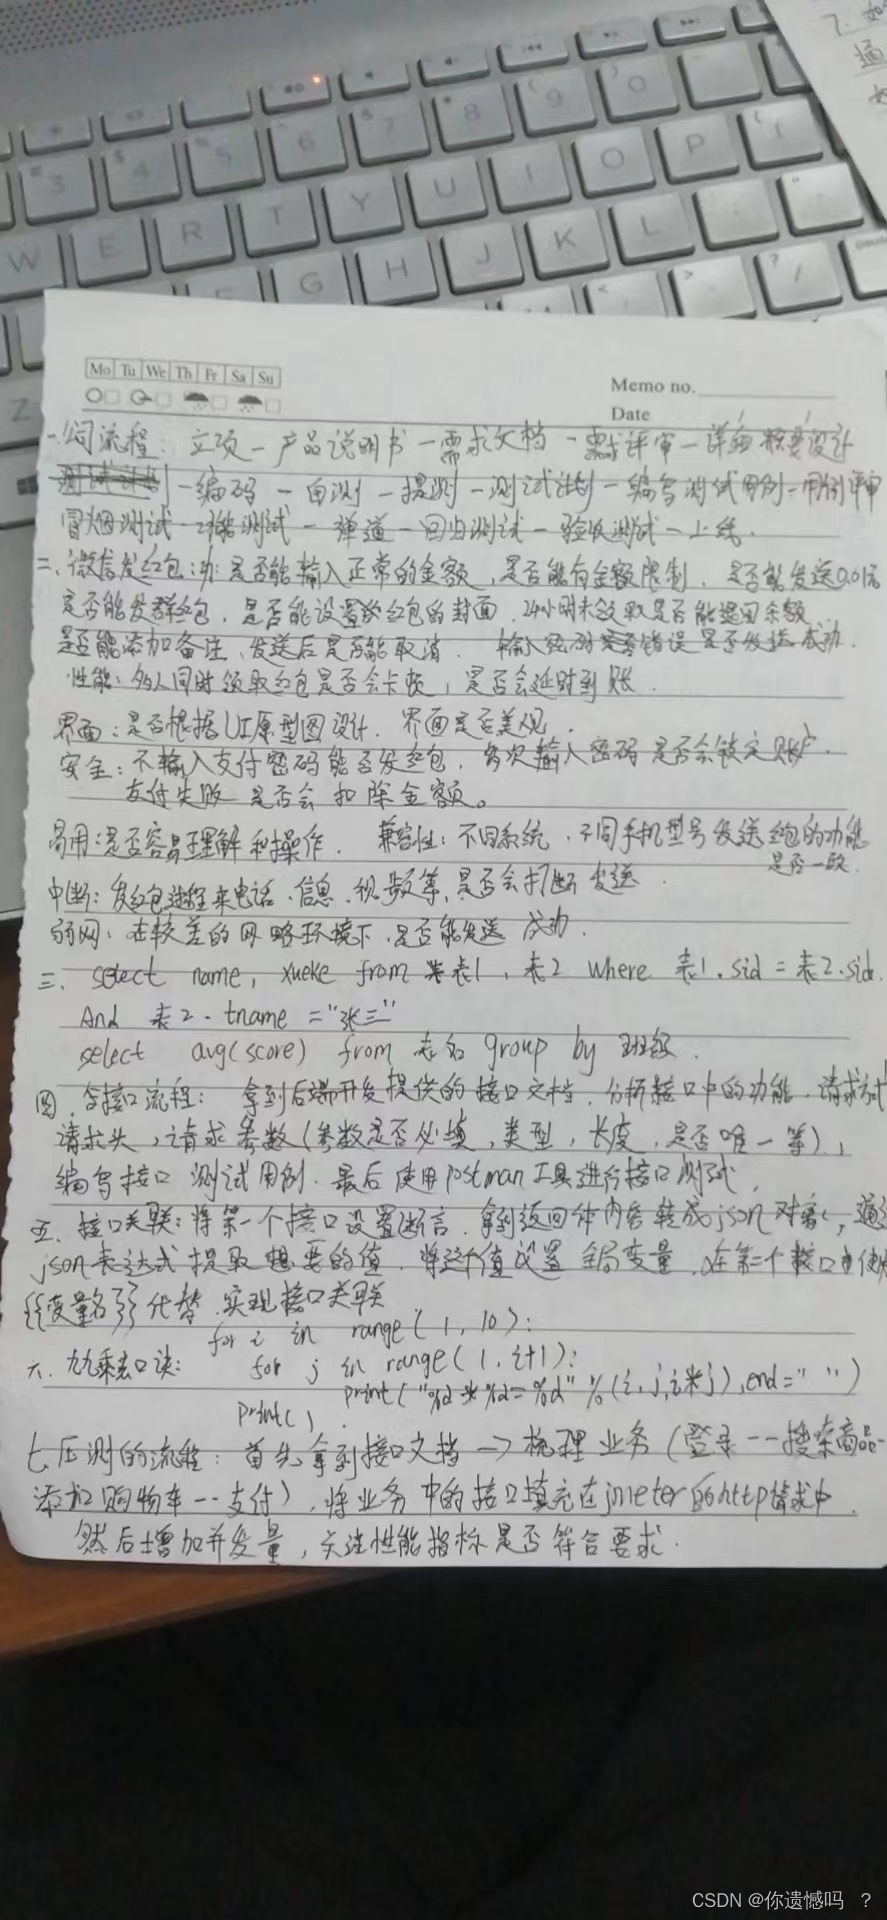 7.
通
Mo Tu We Th Fr Sa Su
Memo no.
Date
一.公司流程: 立项一产品说明书一需求文档一需求评审一详细概要设计
一编码一自测一提测一测试计划一编写测试用例一用例评审
冒烟测试一功能测试一弹道一回归测试一验收测试一上线.
二.微信发红包:功:是否能输入正常的金额,是否能有金额限制.是否能发送0.01元
是否能发群红包.是否能设置红包的封面.24小时未领取是否能退回余额
是否能添加备注、发送后是否能取消. 输入密码错误是否发送成功.
性能:多人同时领取红包是否会卡顿,是否会延时到账.
界面:是否根据UI原型图设计.界面是否美观.
安全:不输入支付密码能否发红包.多次输入密码是否会锁定账户.
支付失败是否会扣除金额。
易用:是否容易理解和操作. 兼容性:不同系统.不同手机型号发送红包的功能
是否一致.
中断:发红包进程来电话、信息、视频等,是否会打断发送.
弱网:在较差的网略环境下.是否能发送成功.
三. select name, xueke from 表1,表2 where 表1.sid=表2.sid.
And 表2.tname="张三"
select avg(score) from 表名 group by 班级.
四.接口流程: 拿到后端开发提供的接口文档.分析接口中的功能.请求方式
请求头,请求参数(参数是否必填,类型,长度,是否唯一等),
编写接口测试用例.最后使用postman工具进行接口测试.
五.接口关联:将第一个接口设置断言.拿到返回体内容转成json对象,通过
json表达式提取想要的值.将这个值设置全局变量.在第二个接口中使用
{{变量名}}代替.实现接口关联
for i in range(1,10):
六.九九乘法口诀: for j in range(1,i+1):
print("%d*%d=%d"%(i,j,i*j),end=" ")
print().
七压测的流程:首先拿到接口文档→梳理业务(登录一一搜索商品一
添加购物车一一支付),将业务中的接口填充在jmeter的http请求中.
然后增加并发量,关注性能指标是否符合要求.
CSDN @你遗憾吗 ?